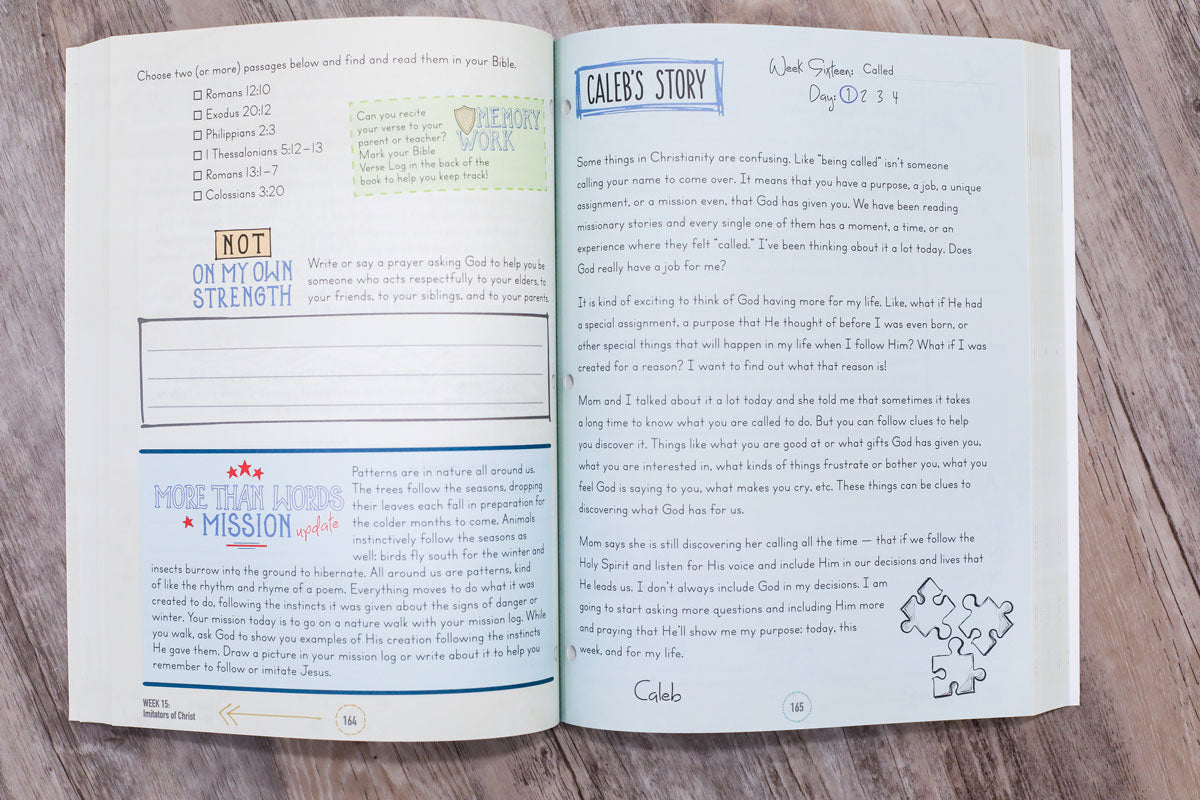 Choose two (or more) passages below and find and read them in your Bible.
Romans 12:10
Exodus 20:12
Philippians 2:3
1 Thessalonians 5:12-13
Romans 13:1-7
Colossians 3:20
Can you recite
your verse to your
parent or teacher?
Mark your Bible
Verse Log in the back of the
book to help you keep track!
MEMORY
WORK
NOT
ON MY OWN
STRENGTH
Write or say a prayer asking God to help you be
someone who acts respectfully to your elders, to
your friends, to your siblings, and to your parents.
MORE THAN WORDS
MISSION update
Patterns are in nature all around us.
The trees follow the seasons, dropping
their leaves each fall in preparation for
the colder months to come. Animals
instinctively follow the seasons as
well; birds fly south for the winter and
insects burrow into the ground to hibernate. All around us are patterns, kind
of like the rhythm and rhyme of a poem. Everything moves to do what it was
created to do, following the instincts it was given about the signs of danger or
winter. Your mission today is to go on a nature walk with your mission log. While
you walk, ask God to show you examples of His creation following the instincts
He gave them. Draw a picture in your mission log or write about it to help you
remember to follow or imitate Jesus.
WEEK 15:
Imitators of Christ
164
CALEB'S STORY
Week Sixteen: Called
Day: 1 2 3 4
Some things in Christianity are confusing. Like "being called" isn't someone
calling your name to come over. It means that you have a purpose, a job, a unique
assignment, or a mission even, that God has given you. We have been reading
missionary stories and every single one of them has a moment, a time, or an
experience where they felt "called." I've been thinking about it a lot today. Does
God really have a job for me?
It is kind of exciting to think of God having more for my life. Like, what if He had
a special assignment, a purpose that He thought of before I was even born, or
other special things that will happen in my life when I follow Him? What if I was
created for a reason? I want to find out what that reason is!
Mom and I talked about it a lot today and she told me that sometimes it takes
a long time to know what you are called to do. But you can follow clues to help
you discover it. Things like what you are good at or what gifts God has given you,
what you are interested in, what kinds of things frustrate or bother you, what you
feel God is saying to you, what makes you cry, etc. These things can be clues to
discovering what God has for us.
Mom says she is still discovering her calling all the time — that if we follow the
Holy Spirit and listen for His voice and include Him in our decisions and lives that
He leads us. I don't always include God in my decisions. I am
going to start asking more questions and including Him more
and praying that He'll show me my purpose: today, this
week, and for my life.
Caleb
165